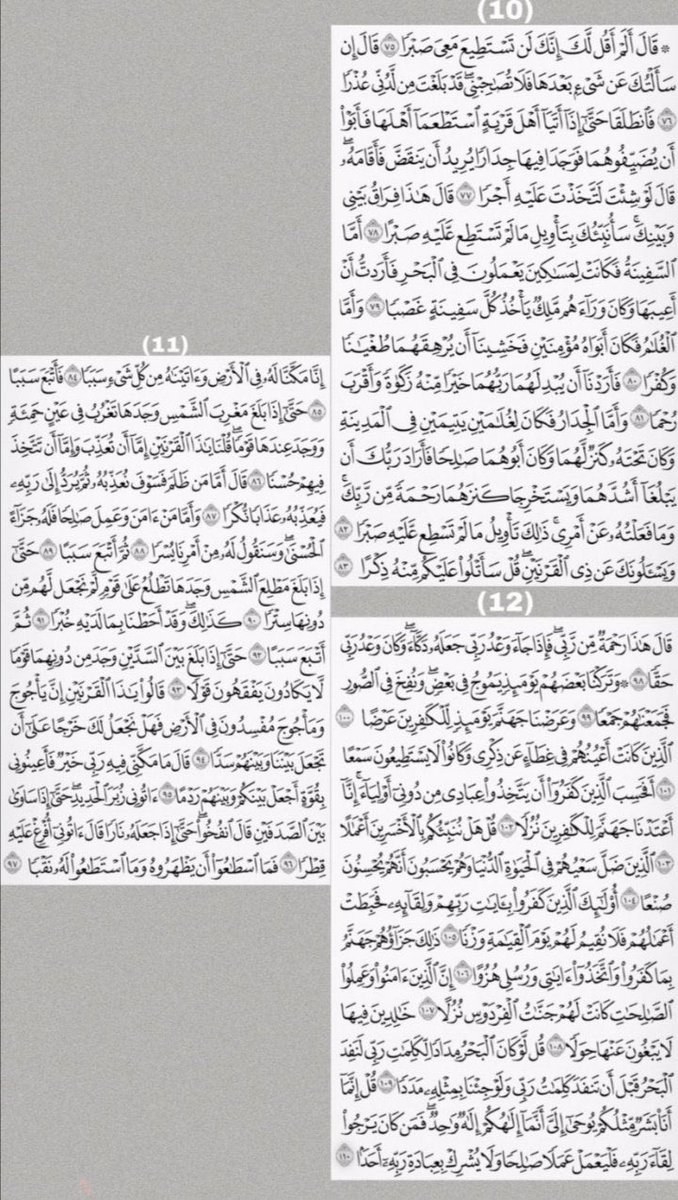 (10)
۞ قَالَ أَلَمْ أَقُل لَّكَ إِنَّكَ لَن تَسْتَطِيعَ مَعِيَ صَبْرًا ٧٥ قَالَ إِن
سَأَلْتُكَ عَن شَيْءٍ بَعْدَهَا فَلَا تُصَاحِبْنِي قَدْ بَلَغْتَ مِن لَّدُنِّي عُذْرًا
٧٦ فَانطَلَقَا حَتَّىٰ إِذَا أَتَيَا أَهْلَ قَرْيَةٍ اسْتَطْعَمَا أَهْلَهَا فَأَبَوْا
أَن يُضَيِّفُوهُمَا فَوَجَدَا فِيهَا جِدَارًا يُرِيدُ أَن يَنقَضَّ فَأَقَامَهُ
قَالَ لَوْ شِئْتَ لَتَّخَذْتَ عَلَيْهِ أَجْرًا ٧٧ قَالَ هَٰذَا فِرَاقُ بَيْنِي
وَبَيْنِكَ سَأُنَبِّئُكَ بِتَأْوِيلِ مَا لَمْ تَسْتَطِع عَّلَيْهِ صَبْرًا ٧٨ أَمَّا
السَّفِينَةُ فَكَانَتْ لِمَسَاكِينَ يَعْمَلُونَ فِي الْبَحْرِ فَأَرَدتُّ أَنْ
أَعِيبَهَا وَكَانَ وَرَاءَهُم مَّلِكٌ يَأْخُذُ كُلَّ سَفِينَةٍ غَصْبًا ٧٩ وَأَمَّا
الْغُلَامُ فَكَانَ أَبَوَاهُ مُؤْمِنَيْنِ فَخَشِينَا أَن يُرْهِقَهُمَا طُغْيَانًا
وَكُفْرًا ٨٠ فَأَرَدْنَا أَن يُبْدِلَهُمَا رَبُّهُمَا خَيْرًا مِّنْهُ زَكَاةً وَأَقْرَبَ
رُحْمًا ٨١ وَأَمَّا الْجِدَارُ فَكَانَ لِغُلَامَيْنِ يَتِيمَيْنِ فِي الْمَدِينَةِ
وَكَانَ تَحْتَهُ كَنزٌ لَّهُمَا وَكَانَ أَبُوهُمَا صَالِحًا فَأَرَادَ رَبُّكَ أَن
يَبْلُغَا أَشُدَّهُمَا وَيَسْتَخْرِجَا كَنزَهُمَا رَحْمَةً مِّن رَّبِّكَ
وَمَا فَعَلْتُهُ عَنْ أَمْرِي ذَٰلِكَ تَأْوِيلُ مَا لَمْ تَسْطِع عَّلَيْهِ صَبْرًا ٨٢
وَيَسْأَلُونَكَ عَن ذِي الْقَرْنَيْنِ قُلْ سَأَتْلُو عَلَيْكُم مِّنْهُ ذِكْرًا ٨٣
(11)
إِنَّا مَكَّنَّا لَهُ فِي الْأَرْضِ وَآتَيْنَاهُ مِن كُلِّ شَيْءٍ سَبَبًا ٨٤ فَأَتْبَعَ سَبَبًا
٨٥ حَتَّىٰ إِذَا بَلَغَ مَغْرِبَ الشَّمْسِ وَجَدَهَا تَغْرُبُ فِي عَيْنٍ حَمِئَةٍ
وَوَجَدَ عِندَهَا قَوْمًا قُلْنَا يَا ذَا الْقَرْنَيْنِ إِمَّا أَن تُعَذِّبَ وَإِمَّا أَن تَتَّخِذَ
فِيهِمْ حُسْنًا ٨٦ قَالَ أَمَّا مَن ظَلَمَ فَسَوْفَ نُعَذِّبُهُ ثُمَّ يُرَدُّ إِلَىٰ رَبِّهِ
فَيُعَذِّبُهُ عَذَابًا نُّكْرًا ٨٧ وَأَمَّا مَنْ آمَنَ وَعَمِلَ صَالِحًا فَلَهُ جَزَاءً
الْحُسْنَىٰ وَسَنَقُولُ لَهُ مِنْ أَمْرِنَا يُسْرًا ٨٨ ثُمَّ أَتْبَعَ سَبَبًا ٨٩ حَتَّىٰ
إِذَا بَلَغَ مَطْلِعَ الشَّمْسِ وَجَدَهَا تَطْلُعُ عَلَىٰ قَوْمٍ لَّمْ نَجْعَل لَّهُم مِّن
دُونِهَا سِتْرًا ٩٠ كَذَٰلِكَ وَقَدْ أَحَطْنَا بِمَا لَدَيْهِ خُبْرًا ٩١ ثُمَّ
أَتْبَعَ سَبَبًا ٩٢ حَتَّىٰ إِذَا بَلَغَ بَيْنَ السَّدَّيْنِ وَجَدَ مِن دُونِهِمَا قَوْمًا
لَّا يَكَادُونَ يَفْقَهُونَ قَوْلًا ٩٣ قَالُوا يَا ذَا الْقَرْنَيْنِ إِنَّ يَأْجُوجَ
وَمَأْجُوجَ مُفْسِدُونَ فِي الْأَرْضِ فَهَلْ نَجْعَلُ لَكَ خَرْجًا عَلَىٰ أَن
تَجْعَلَ بَيْنَنَا وَبَيْنَهُمْ سَدًّا ٩٤ قَالَ مَا مَكَّنِّي فِيهِ رَبِّي خَيْرٌ فَأَعِينُونِي
بِقُوَّةٍ أَجْعَلْ بَيْنَكُمْ وَبَيْنَهُمْ رَدْمًا ٩٥ آتُونِي زُبَرَ الْحَدِيدِ حَتَّىٰ إِذَا سَاوَىٰ
بَيْنَ الصَّدَفَيْنِ قَالَ انفُخُوا حَتَّىٰ إِذَا جَعَلَهُ نَارًا قَالَ آتُونِي أُفْرِغْ عَلَيْهِ
قِطْرًا ٩٦ فَمَا اسْطَاعُوا أَن يَظْهَرُوهُ وَمَا اسْتَطَاعُوا لَهُ نَقْبًا ٩٧
(12)
قَالَ هَٰذَا رَحْمَةٌ مِّن رَّبِّي فَإِذَا جَاءَ وَعْدُ رَبِّي جَعَلَهُ دَكَّاءَ وَكَانَ وَعْدُ رَبِّي
حَقًّا ٩٨ ۞ وَتَرَكْنَا بَعْضَهُمْ يَوْمَئِذٍ يَمُوجُ فِي بَعْضٍ وَنُفِخَ فِي الصُّورِ
فَجَمَعْنَاهُمْ جَمْعًا ٩٩ وَعَرَضْنَا جَهَنَّمَ يَوْمَئِذٍ لِّلْكَافِرِينَ عَرْضًا ١٠٠
الَّذِينَ كَانَتْ أَعْيُنُهُمْ فِي غِطَاءٍ عَن ذِكْرِي وَكَانُوا لَا يَسْتَطِيعُونَ سَمْعًا
١٠١ أَفَحَسِبَ الَّذِينَ كَفَرُوا أَن يَتَّخِذُوا عِبَادِي مِن دُونِي أَوْلِيَاءَ إِنَّا
أَعْتَدْنَا جَهَنَّمَ لِلْكَافِرِينَ نُزُلًا ١٠٢ قُلْ هَلْ نُنَبِّئُكُم بِالْأَخْسَرِينَ أَعْمَالًا
١٠٣ الَّذِينَ ضَلَّ سَعْيُهُمْ فِي الْحَيَاةِ الدُّنْيَا وَهُمْ يَحْسَبُونَ أَنَّهُمْ يُحْسِنُونَ
صُنْعًا ١٠٤ أُولَٰئِكَ الَّذِينَ كَفَرُوا بِآيَاتِ رَبِّهِمْ وَلِقَائِهِ فَحَبِطَتْ
أَعْمَالُهُمْ فَلَا نُقِيمُ لَهُمْ يَوْمَ الْقِيَامَةِ وَزْنًا ١٠٥ ذَٰلِكَ جَزَاؤُهُمْ جَهَنَّمُ
بِمَا كَفَرُوا وَاتَّخَذُوا آيَاتِي وَرُسُلِي هُزُوًا ١٠٦ إِنَّ الَّذِينَ آمَنُوا وَعَمِلُوا
الصَّالِحَاتِ كَانَتْ لَهُمْ جَنَّاتُ الْفِرْدَوْسِ نُزُلًا ١٠٧ خَالِدِينَ فِيهَا
لَا يَبْغُونَ عَنْهَا حِوَلًا ١٠٨ قُل لَّوْ كَانَ الْبَحْرُ مِدَادًا لِّكَلِمَاتِ رَبِّي لَنَفِدَ
الْبَحْرُ قَبْلَ أَن تَنفَدَ كَلِمَاتُ رَبِّي وَلَوْ جِئْنَا بِمِثْلِهِ مَدَدًا ١٠٩ قُلْ إِنَّمَا
أَنَا بَشَرٌ مِّثْلُكُمْ يُوحَىٰ إِلَيَّ أَنَّمَا إِلَٰهُكُمْ إِلَٰهٌ وَاحِدٌ فَمَن كَانَ يَرْجُو
لِقَاءَ رَبِّهِ فَلْيَعْمَلْ عَمَلًا صَالِحًا وَلَا يُشْرِكْ بِعِبَادَةِ رَبِّهِ أَحَدًا ١١٠